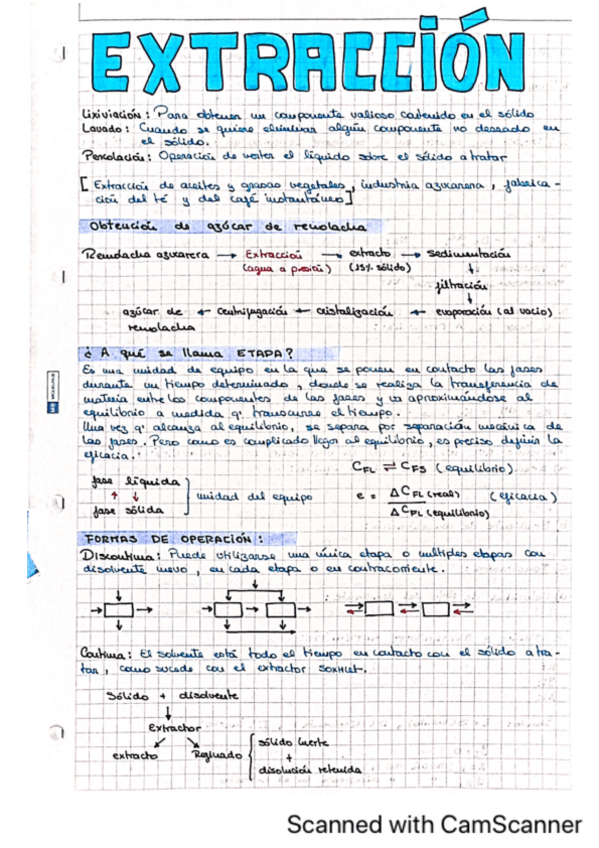 EXTRACCIÓN
Lixiviación: Para obtener un componente valioso contenido en el sólido
Lavado: Cuando se quiere eliminar algún componente no deseado en
el sólido.
Percolación: Operación de verter el líquido sobre el sólido a tratar
[Extracción de aceites y grasas vegetales, industria azucarera, fabrica-
ción del té y del café instantáneo]
Obtención de azúcar de remolacha
Remolacha azucarera → Extracción → extracto → sedimentación
(agua a presión) (15% sólido) ↓
filtración
↓
azúcar de ← centrifugación ← cristalización ← evaporación (al vacío)
remolacha
¿A qué se llama ETAPA?
Es una unidad de equipo en la que se ponen en contacto las fases
durante un tiempo determinado, donde se realiza la transferencia de
materia entre los componentes de las fases y va aproximándose al
equilibrio a medida q' transcurre el tiempo.
Una vez q' alcanza el equilibrio, se separa por separación mecánica de
las fases. Pero como es complicado llegar al equilibrio, es preciso definir la
eficacia.
CFL ⇌ CFS (equilibrio)
fase líquida
↑ ↓ unidad del equipo
fase sólida
e = ΔCFL (real) / ΔCFL (equilibrio) (eficacia)
FORMAS DE OPERACIÓN:
Discontinua: Puede utilizarse una única etapa o múltiples etapas con
disolvente nuevo, en cada etapa o en contracorriente.
Continua: El solvente está todo el tiempo en contacto con el sólido a tra-
tar, como sucede con el extractor SOXHLET.
Sólido + disolvente
↓
Extractor
extracto Refinado { sólido inerte
+
disolución retenida
Scanned with CamScanner